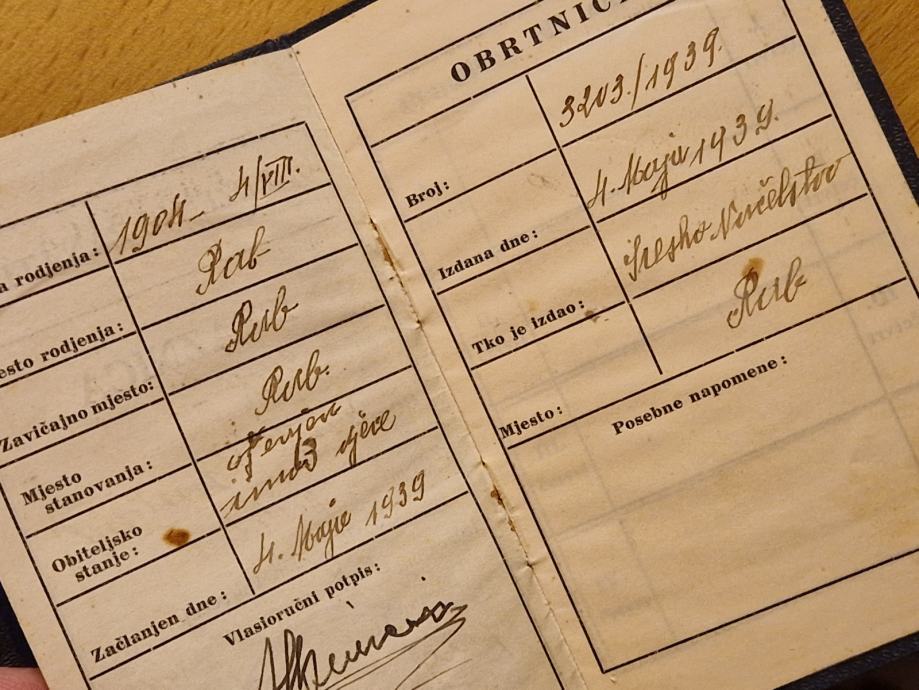 a rodjenja: 1904 - 4/VIII.
esto rodjenja: Rab
Zavičajno mjesto: Rab
Mjesto stanovanja: Rab.
Obiteljsko stanje: oženjen
ima 3 djece
Začlanjen dne: 4. Maja 1939
Vlastoručni potpis:
OBRTNIC
Broj: 3203/1939.
Izdana dne: 4. Maja 1939.
Tko je izdao: Sresko Načelstvo
Mjesto: Rab
Posebne napomene: